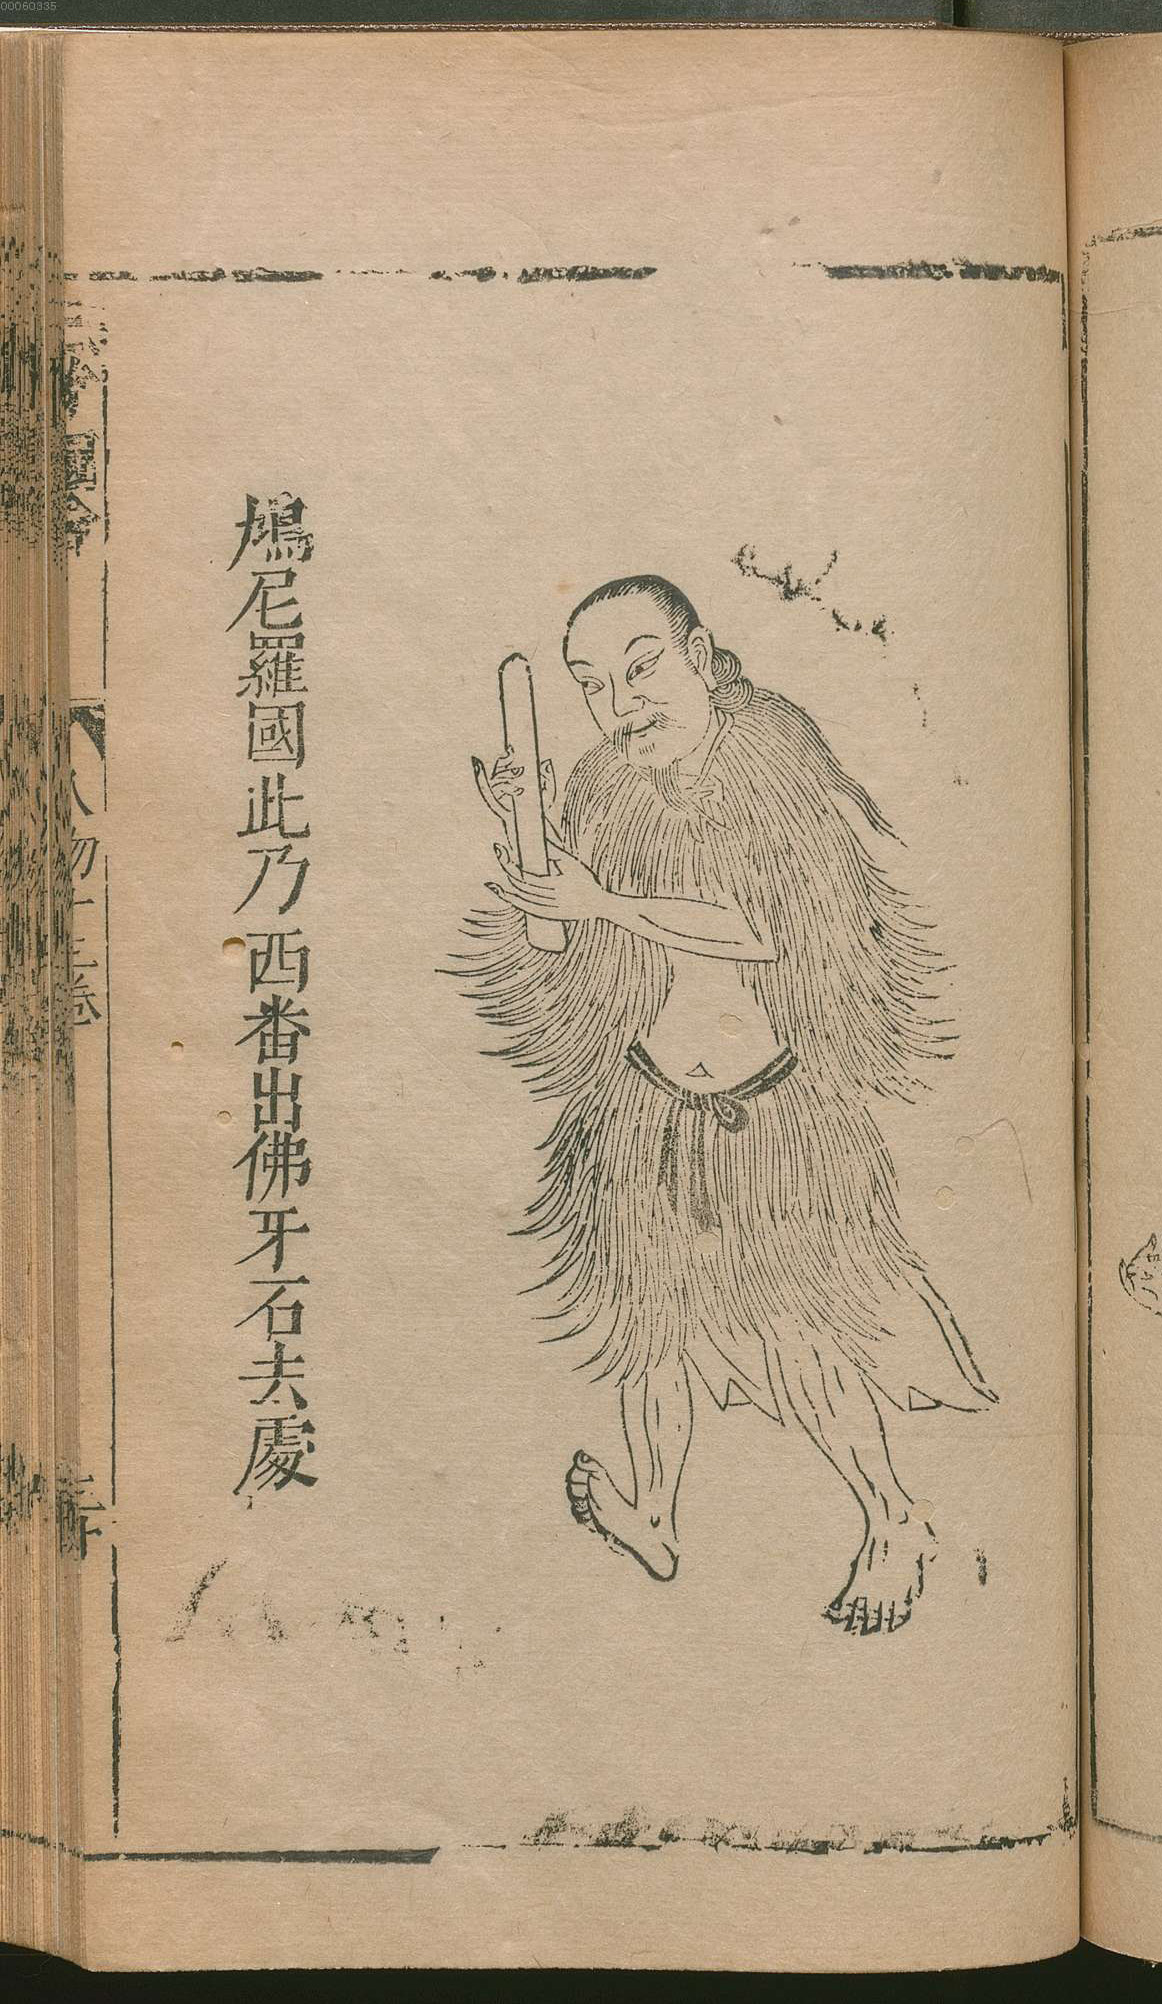 00060335
鳩尼羅國此乃西番出佛牙石去處
圖會
人物十三卷